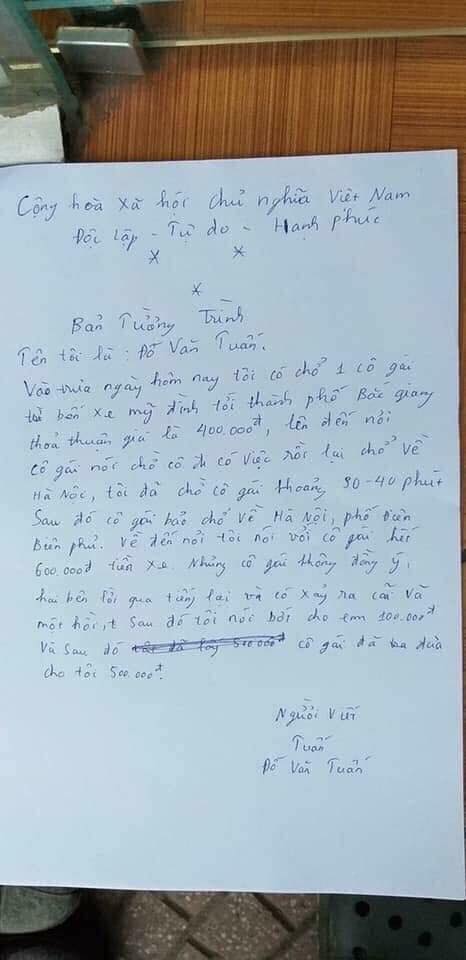 Cộng hoà xã hội chủ nghĩa Việt Nam
Độc lập - Tự do - Hạnh phúc
* *
*
Bản Tường Trình
Tên tôi là : Đỗ Văn Tuấn.
Vào trưa ngày hôm nay tôi có chở 1 cô gái
từ bến xe mỹ đình tới thành phố Bắc giang
thoả thuận giá là 400.000đ, lên đến nơi
cô gái nói chờ cô đi có việc rồi lại chở về
Hà Nội, tôi đã chờ cô gái khoảng 30-40 phút
Sau đó cô gái bảo chở về Hà Nội, phố Điện
Biên phủ. Về đến nơi tôi nói với cô gái hết
600.000đ tiền xe. Nhưng cô gái không đồng ý,
hai bên lời qua tiếng lại và có xảy ra cãi vã
một hồi, Sau đó tôi nói bớt cho em 100.000đ
Và sau đó cô gái đã đưa
cho tôi 500.000đ.
Người viết
Tuấn
Đỗ Văn Tuấn